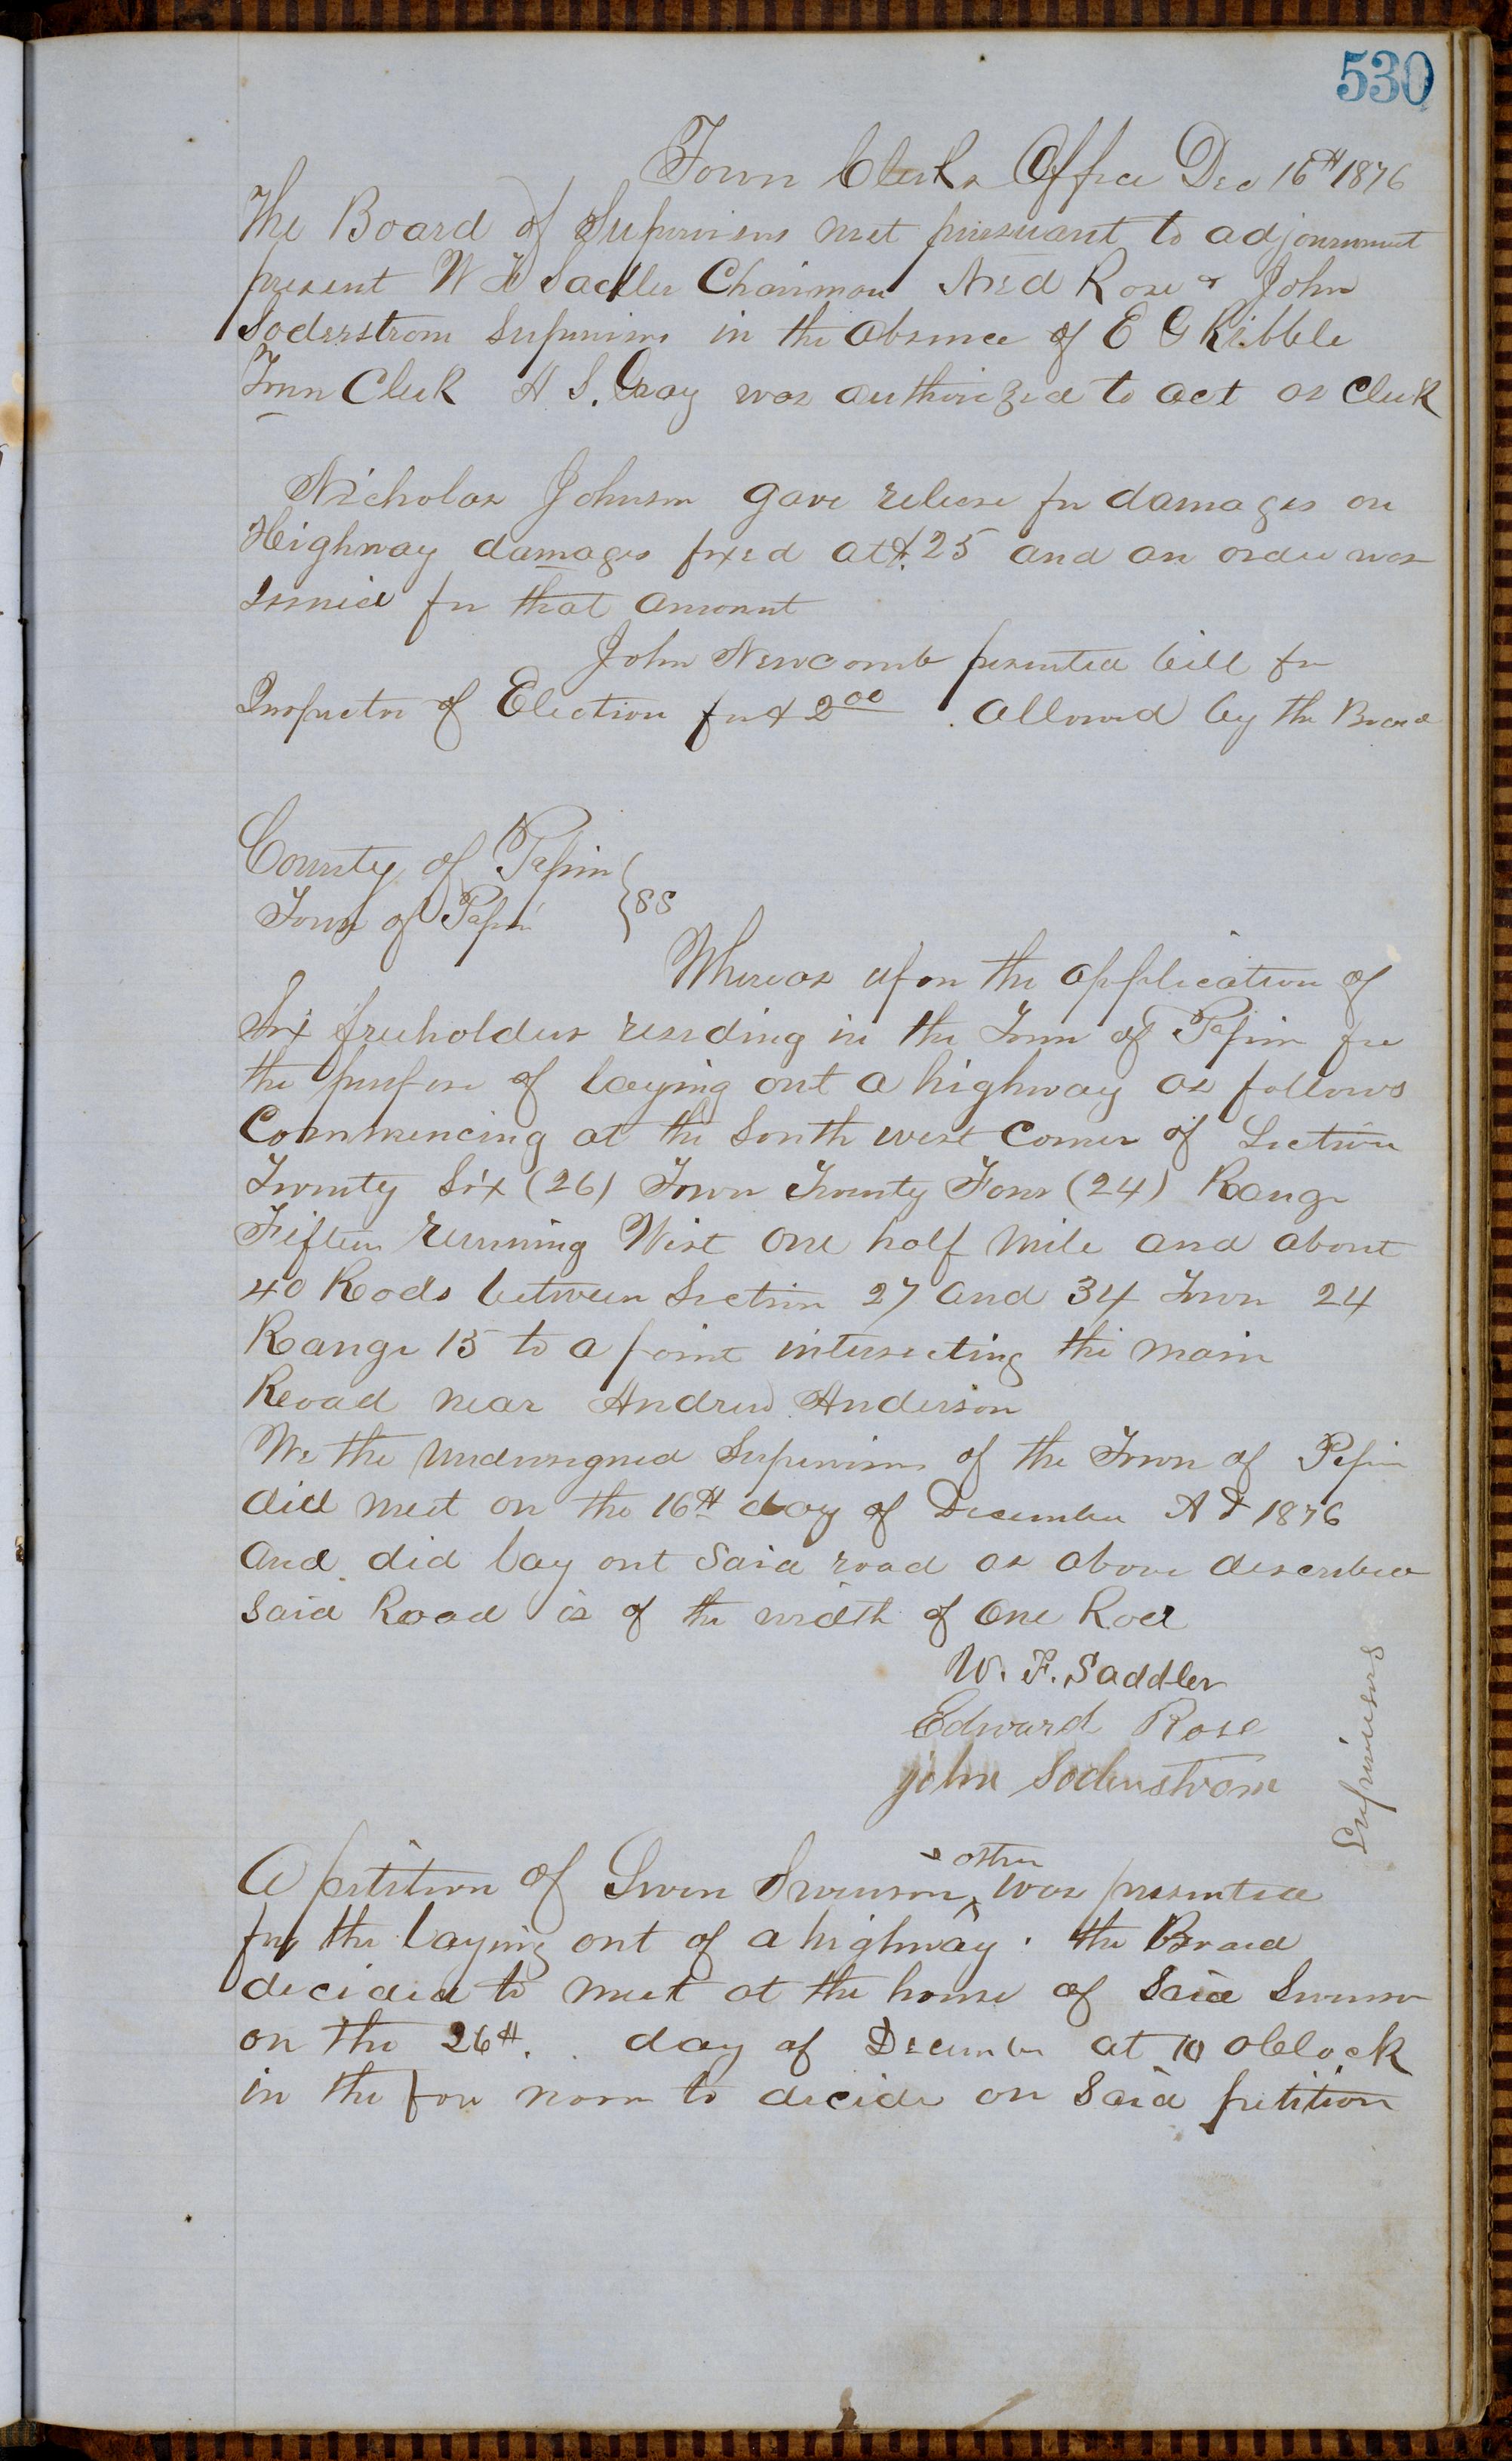 530
Town Clerks Office Dec 16th 1876
The Board of Supervisors met pursuant to adjournment
present W F Sadler Chairman Ned Rose & John
Soderstrom Supervisors in the absence of E G Kibble
Town Clerk H S. Gray was authorized to act as Clerk
Nicholas Johnson gave release for damages on
Heighway damages fixed at $.25 and an order was
Issued for that amount
John Newcomb presented bill for
Inspector of Election for $ 2 00 . allowed by the Board
County of Pepin
Town of Pepin } SS
Whereas upon the application of
Six freeholders residing in the Town of Pepin for
the purpose of laying out a highway as follows
Commencing at the South west Corner of Section
Twenty Six (26) Town Twenty Four (24) Range
Fifteen running West one half mile and about
40 Rods between Section 27 and 34 Town 24
Range 15 to a point intersecting the main
Road near Andrew Anderson
We the undersigned Supervisors of the Town of Pepin
did meet on the 16th day of December A D 1876
and did lay out said road as above described
said Road is of the width of One Rod
W. F. Saddler
Edward Rose
john Soderstrom
Supervisors
A petition of Swen Swenson & other was presented
for the laying out of a highway . the Board
decided to meet at the house of said Swenson
on the 26th. day of December at 10 oClock
in the fore noon to decide on said petition